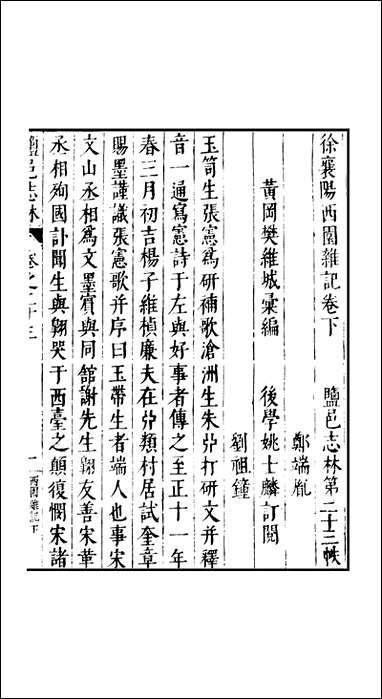 徐襄陽西園雜記卷下　鹽邑志林第二十二帙
鄭端胤
黃岡樊維城彙編　後學姚士麟訂閱
劉祖鐘
玉笥生張憲爲研補歌滄洲生朱𢎞打研文并釋
音一通寫憲詩于左與好事者傳之至正十一年
春三月初吉楊子維楨廉夫在𢎞類村居試奎章
賜墨謹識張憲歌并序曰玉帶生者端人也事宋
文山丞相爲文墨賓與同舘謝先生翺友善宋革
丞相殉國訃聞生與翺哭于西臺之顛復憫宋諸
鹽邑志林
卷之二十三
一
西園雜記下